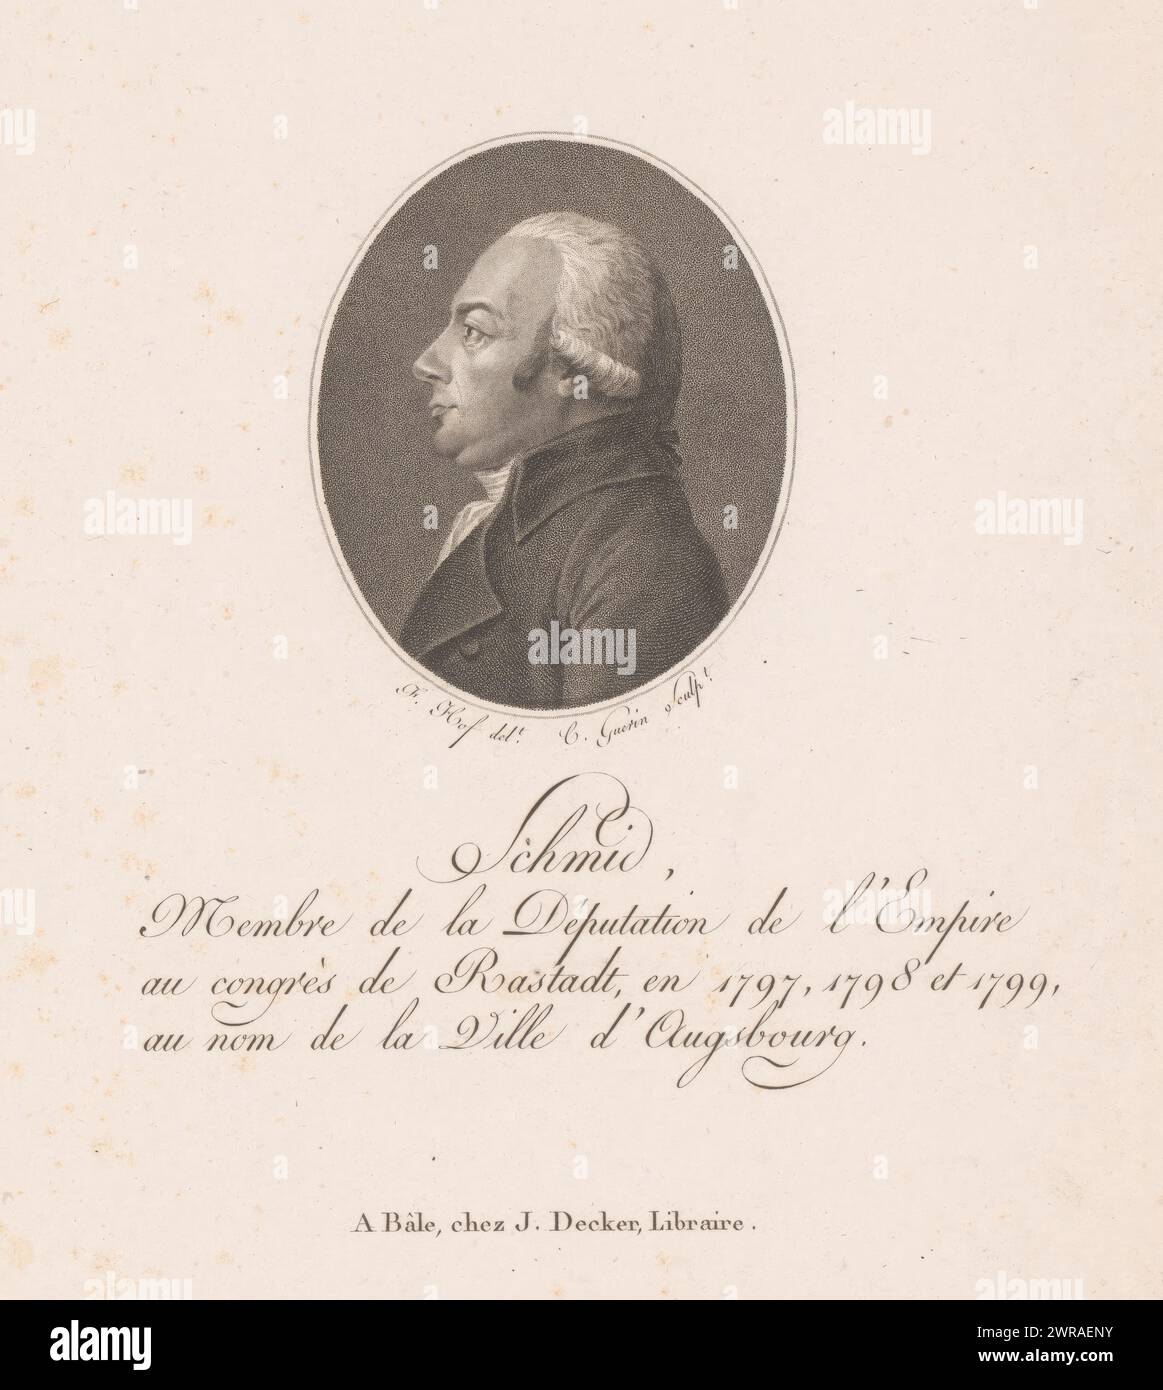 F. Hof del.t C. Guérin Sculp.t
Schmid,
Membre de la Députation de l'Empire
au congrès de Rastadt, en 1797, 1798 et 1799,
au nom de la Ville d'Augsbourg.
A Bâle, chez J. Decker, Libraire.
alamy
Image ID: 2WRAENY
www.alamy.com